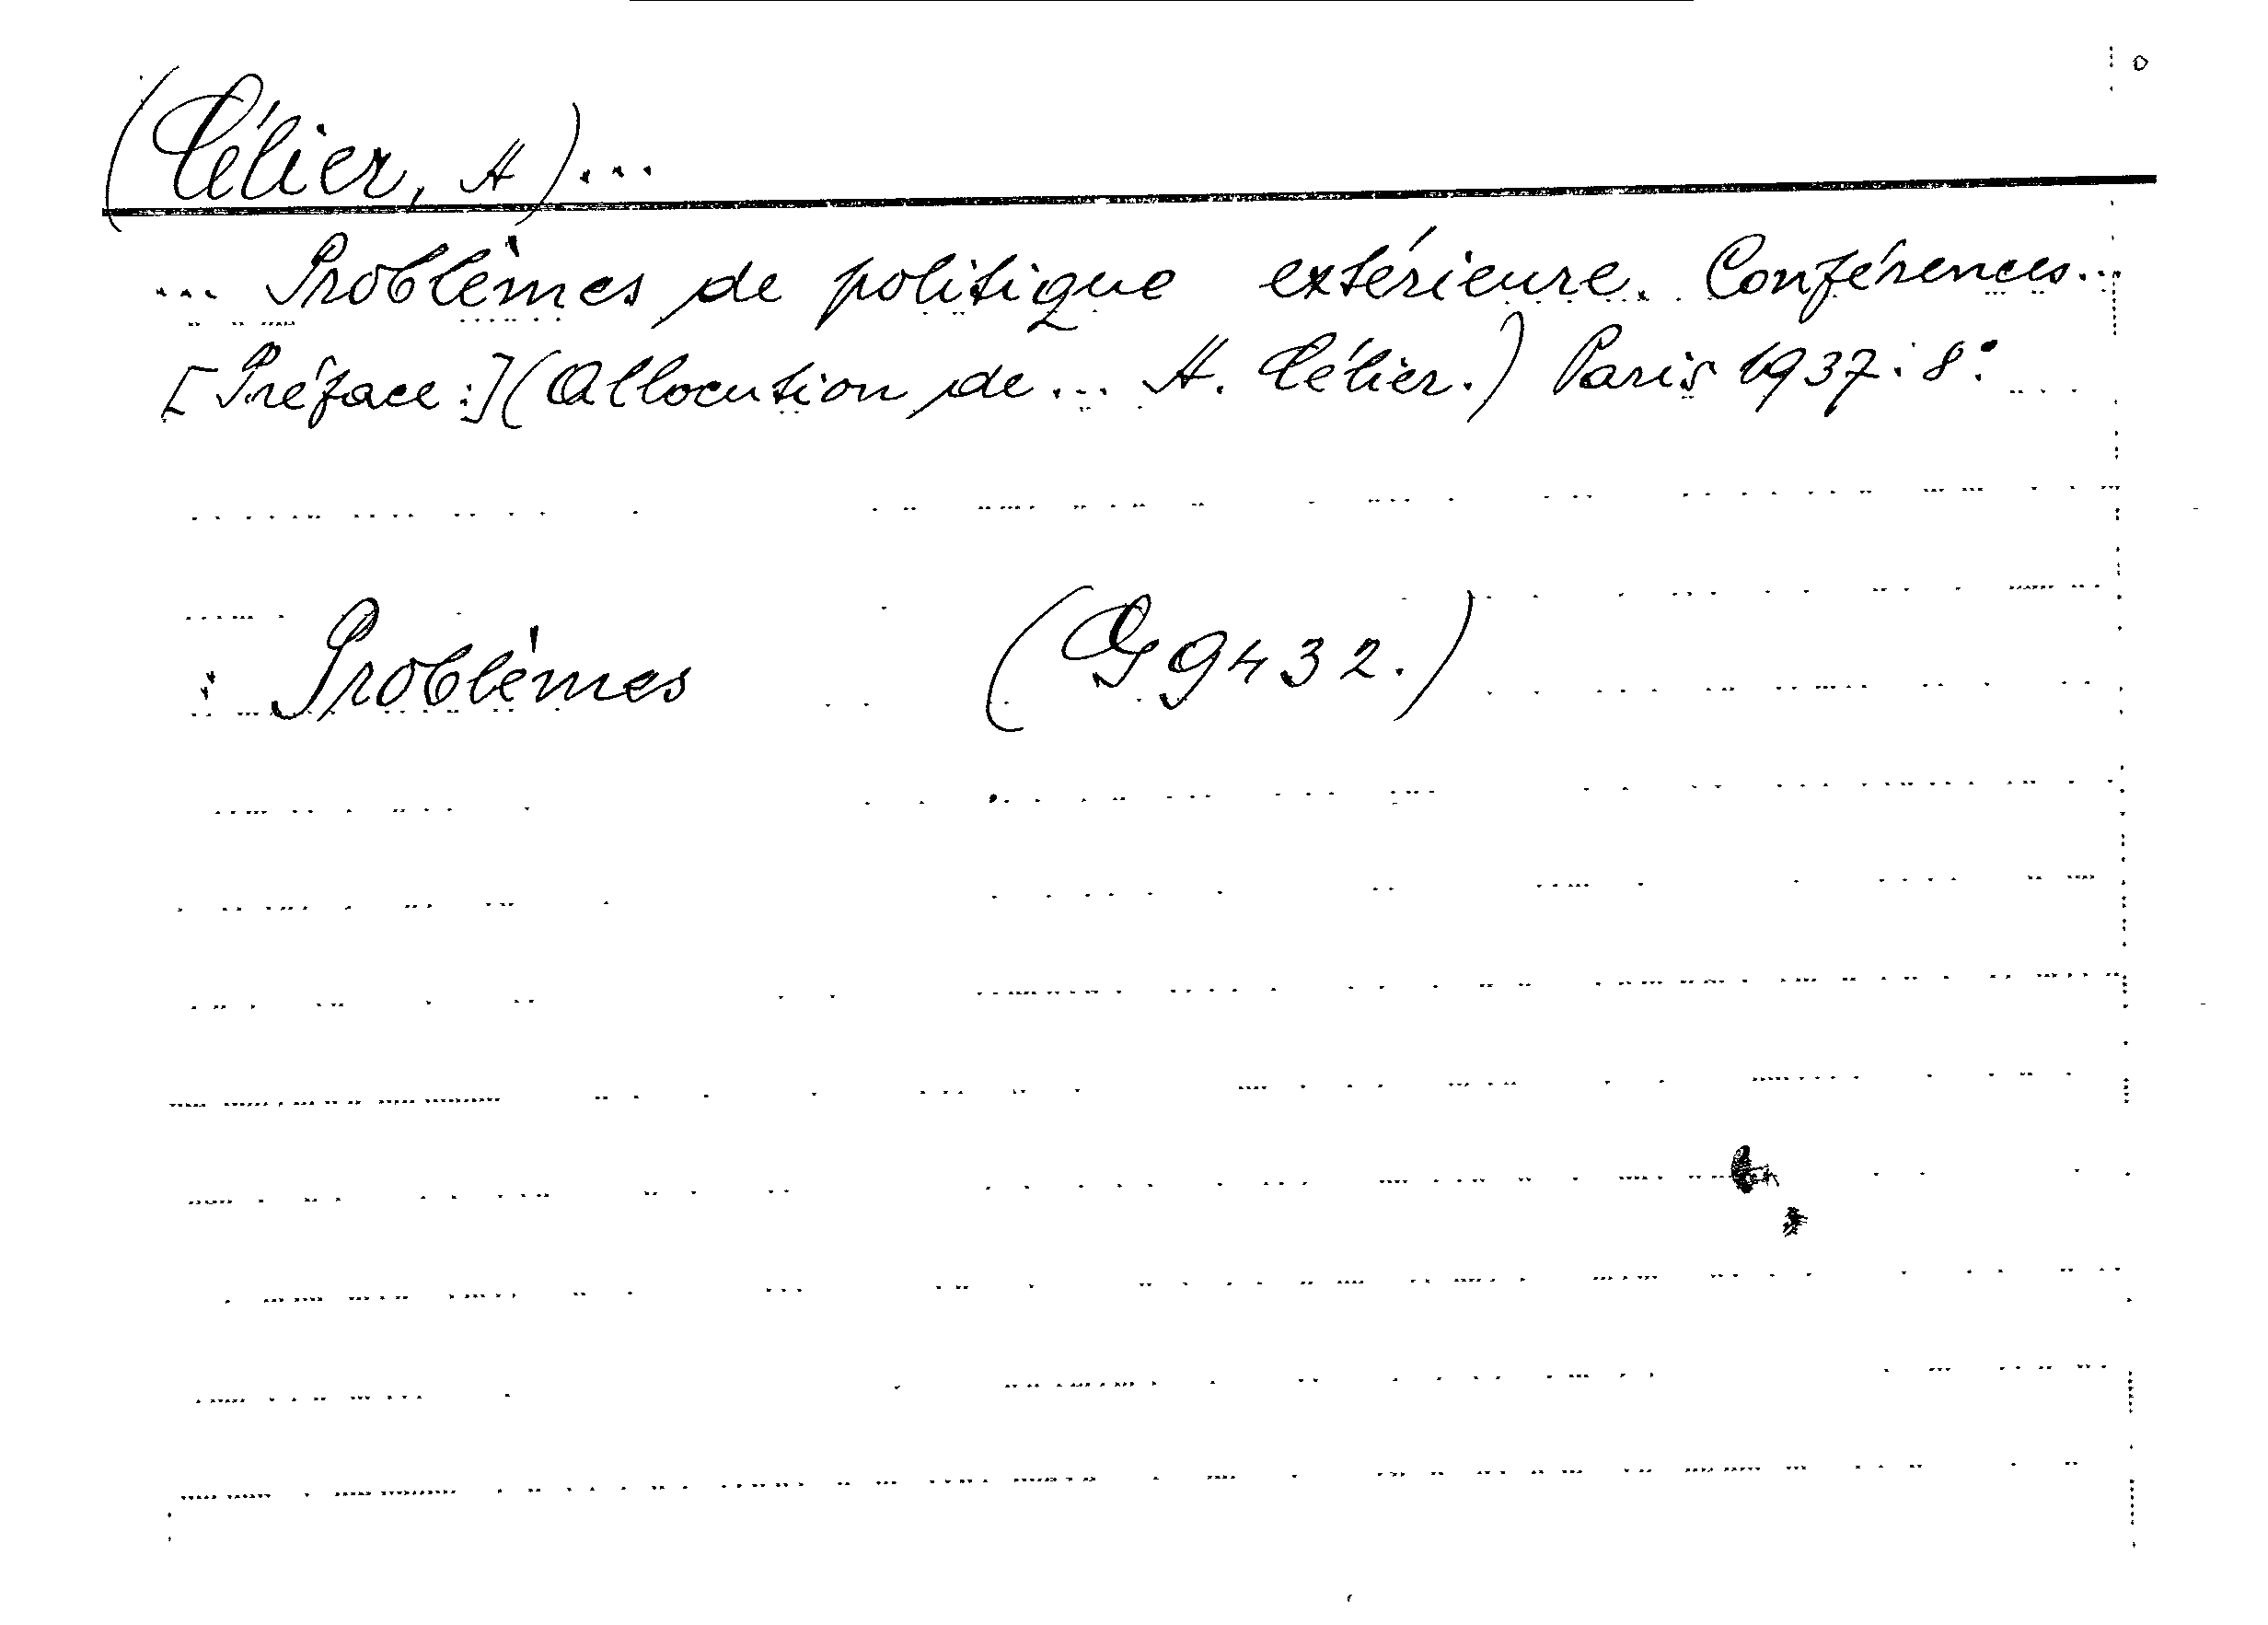 (Célier, A)...
... Problèmes de politique extérieure. Conférences...
[Préface:] (Allocution de ... A. Célier.) Paris 1937. 8°
: Problèmes (G 9432.)